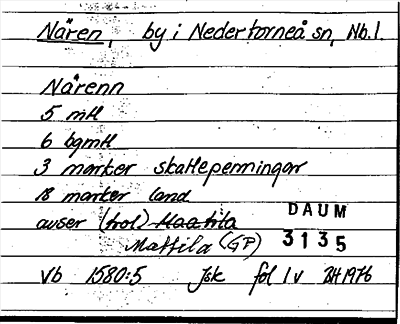 Nären, by i Nedertorneå sn, Nb.l.
Närenn
5 mtl
6 bgmtl
3 marker skattepenningar
18 marker land
avser (trol) Maatila
Mattila (GP)
DAUM
3135
Vb 1580:5 Jsk fol 1v BH 1976